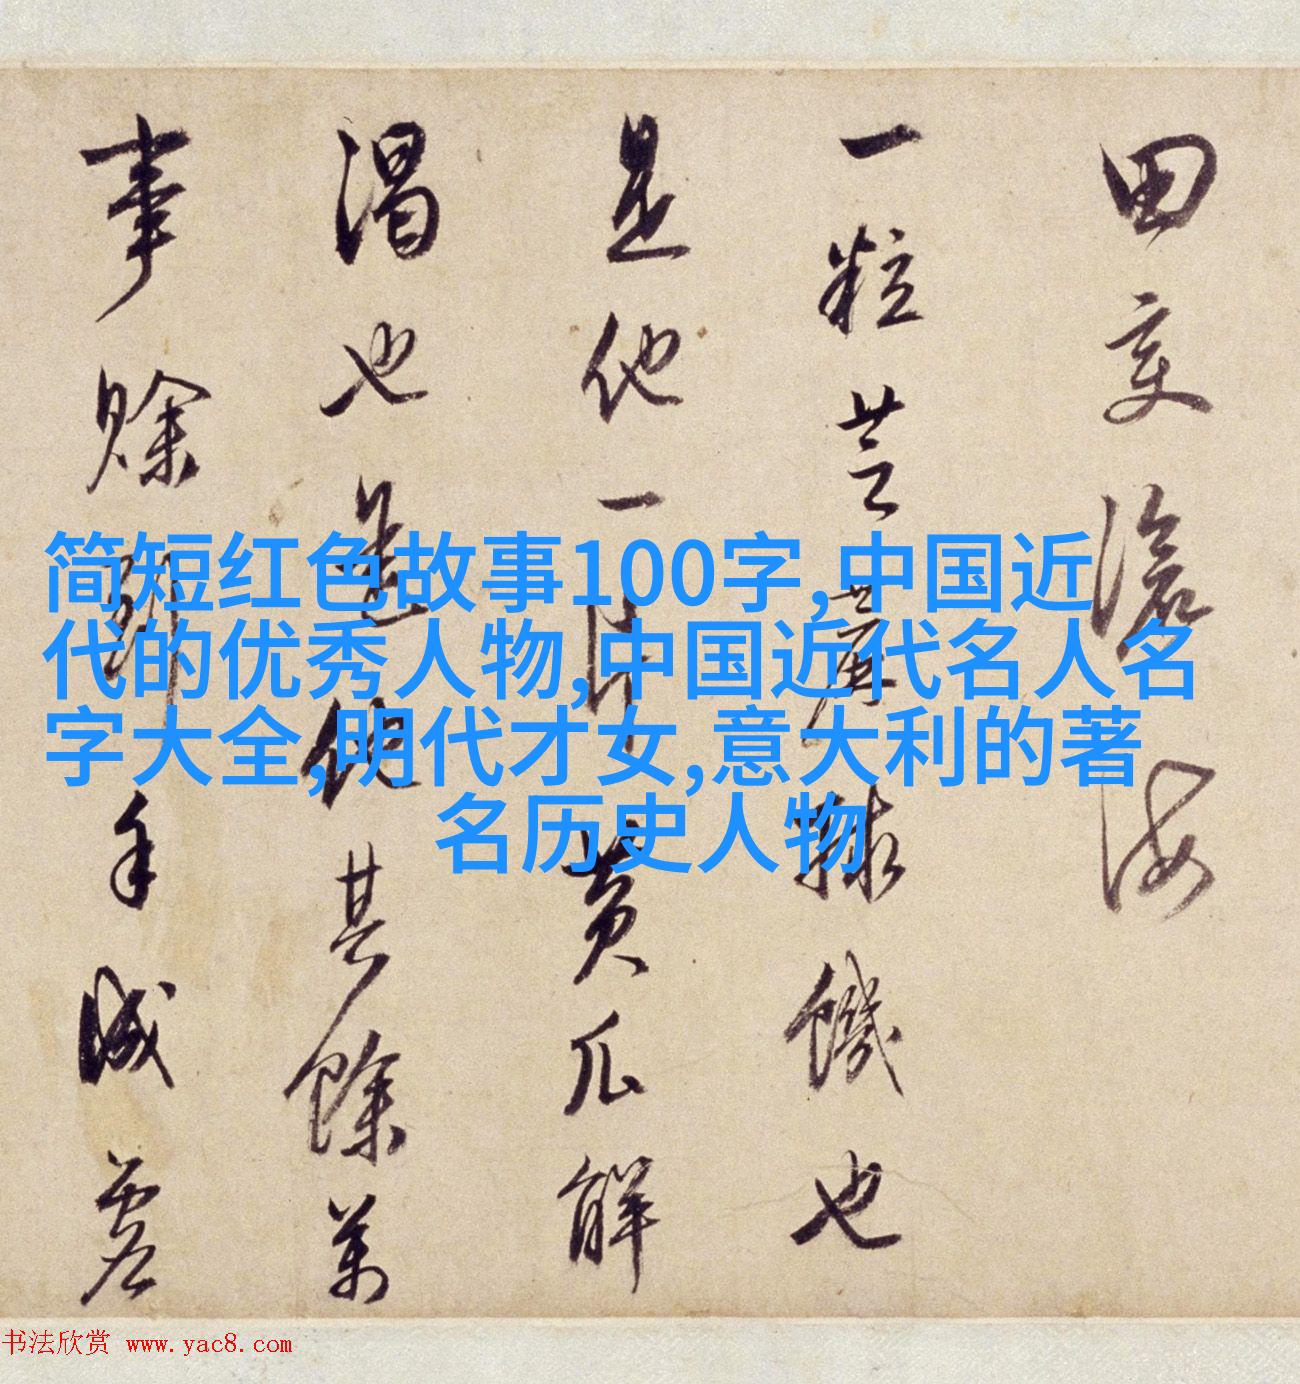 田变滄海
一粒芝麻救饑也
是他一片黄瓜解
渴也是他其餘萬
事賒手
简短红色故事100字,中国近
代的优秀人物,中国近代名人名
字大全,明代才女,意大利的著
名历史人物
书法欣赏 www.yac8.com